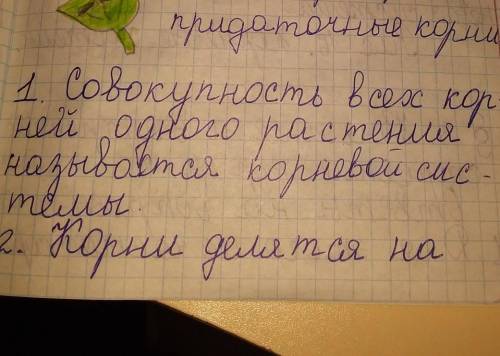 придаточные корни
1. Совокупность всех кор-
ней одного растения
называется корневой сис-
темы.
2. Корни делятся на